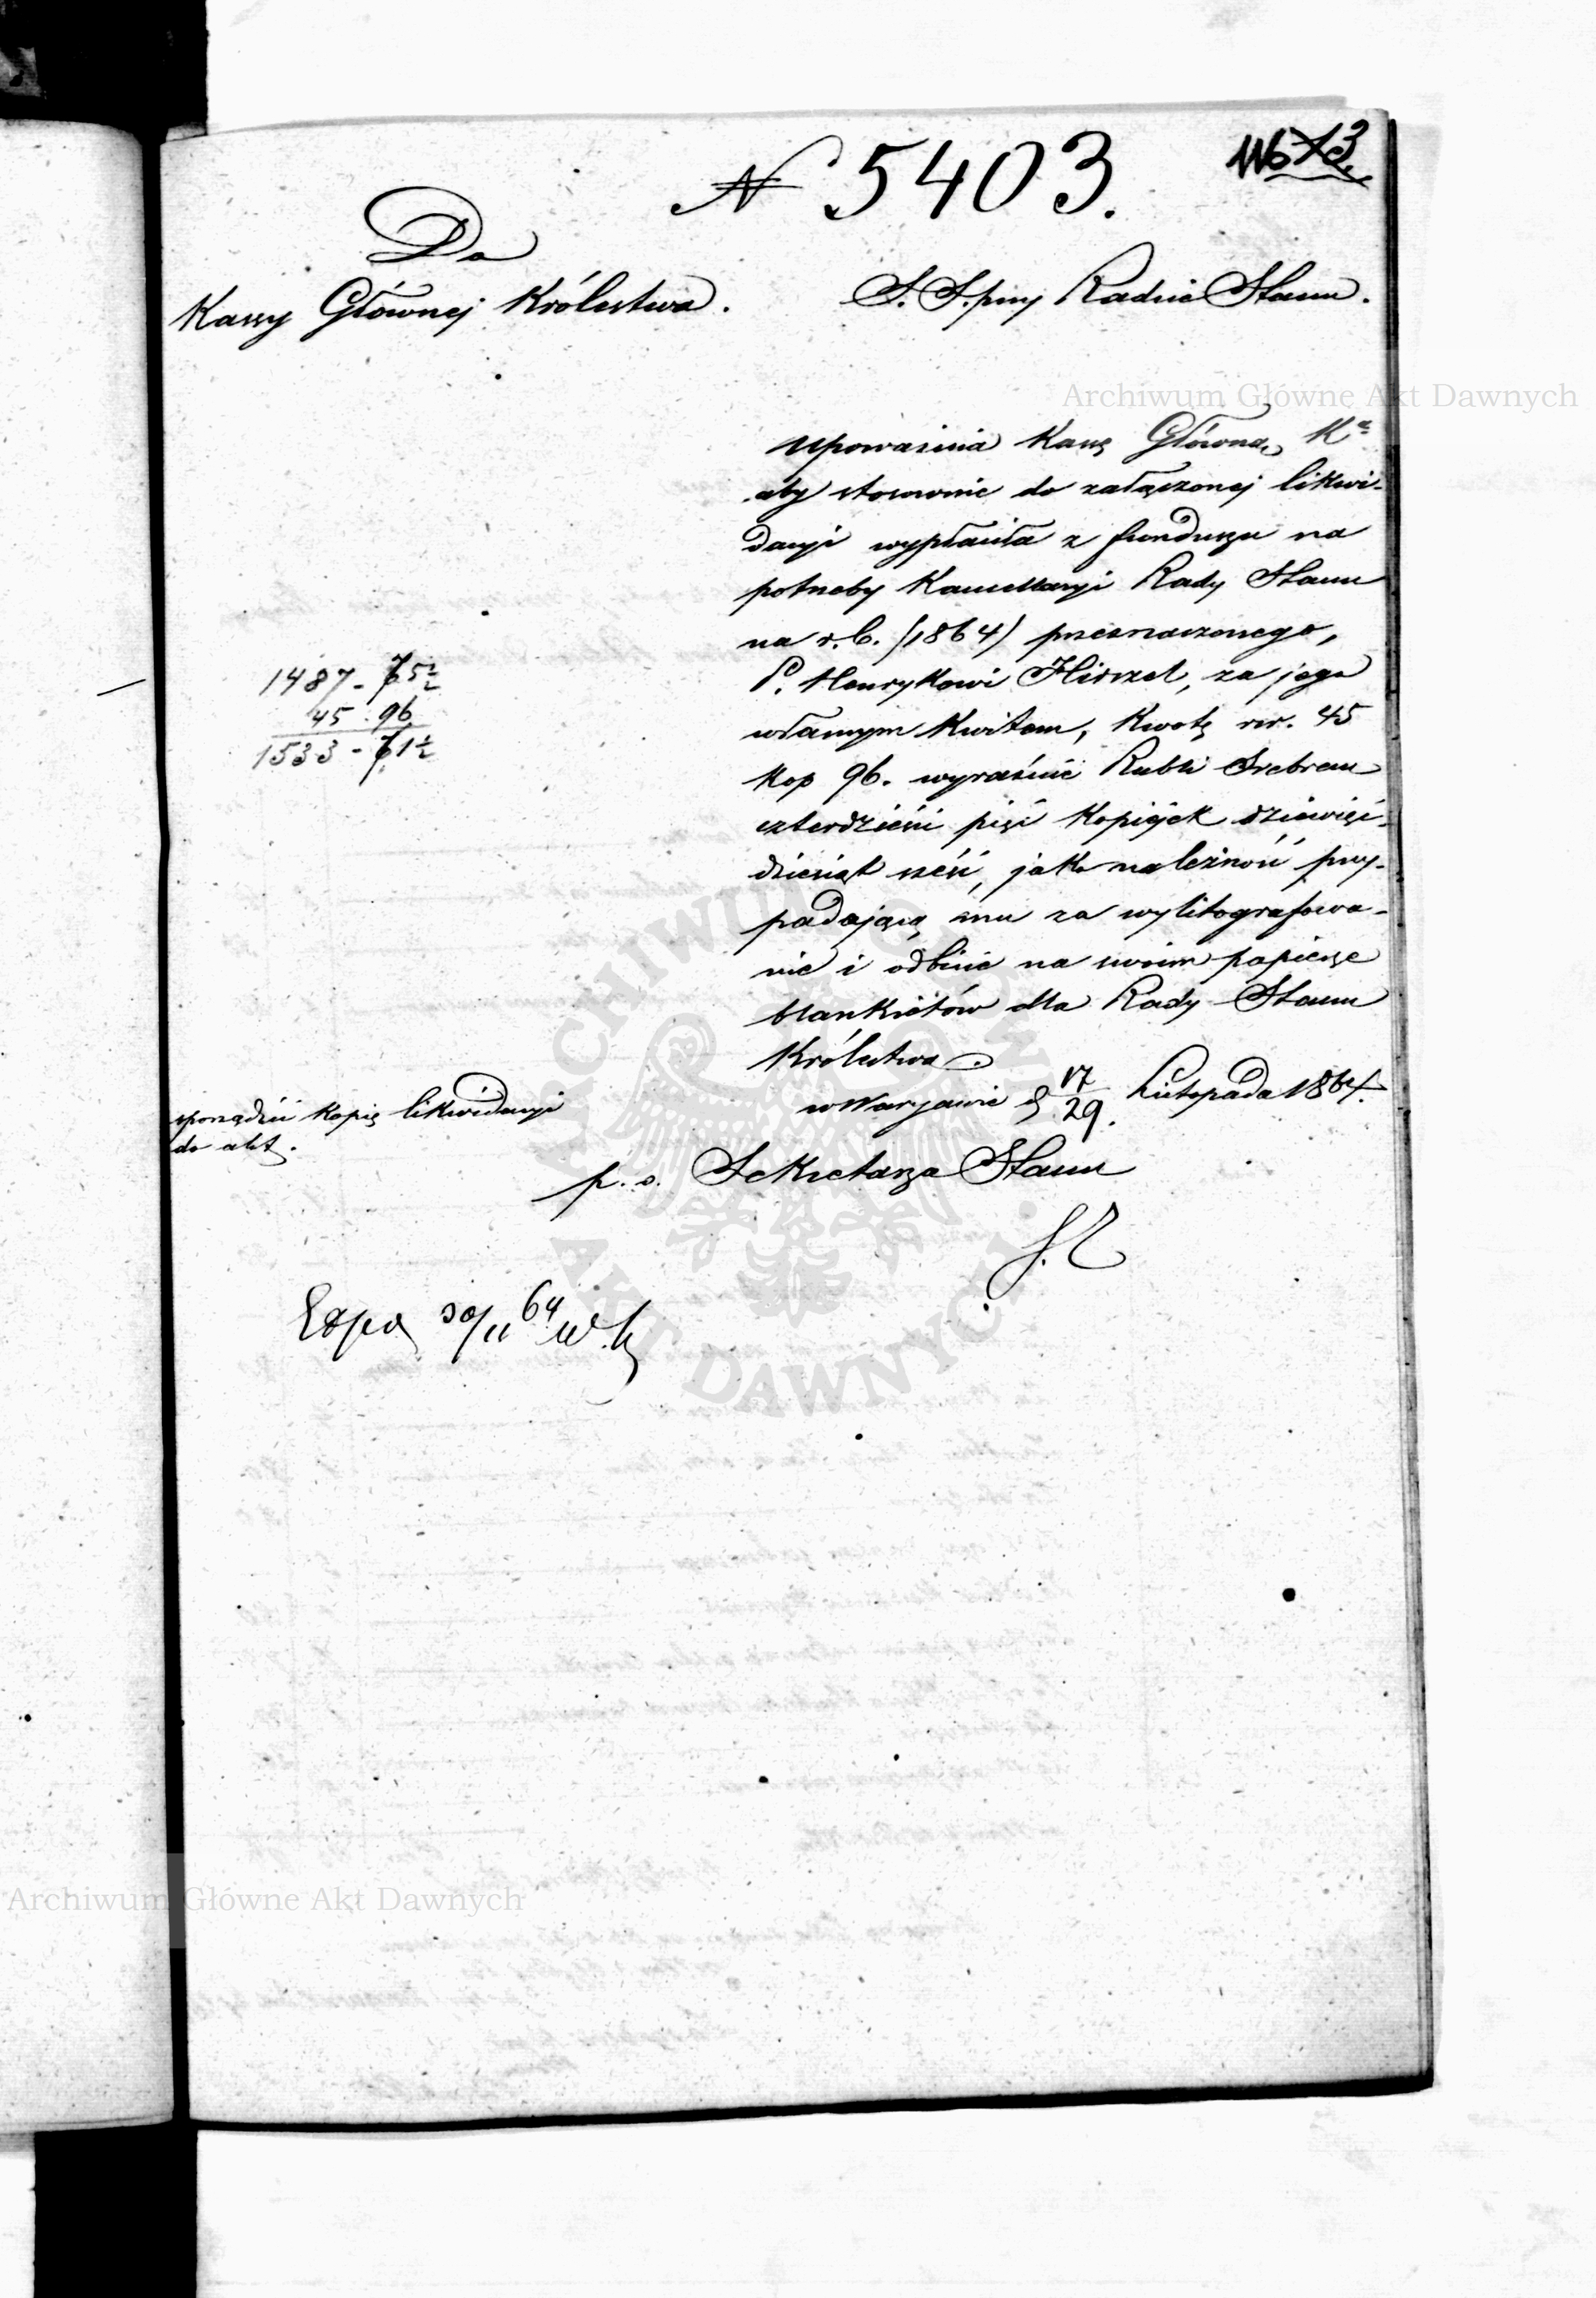 N 5403.
Do
Kassy Głównej Królestwa.
S. S. przy Radzie Stanu.
Archiwum Główne Akt Dawnych
upoważnia Kassę Główną Kᵃ
aby stosownie do załączonej likwi-
dacyi wypłaciła z funduszu na
potrzeby Kancellaryi Rady Stanu
na r. b. /1864/ przeznaczonego,
P. Henrykowi Hirszel, za jego
własnym kwitem, kwotę rsr. 45
kop 96. wyraźnie Rubli Srebrem
czterdzieści pięć kopiejek dziewięć-
dziesiąt sześć, jako należność przy-
padającą mu za wylitografowa-
nie i odbicie na swoim papierze
blankietów dla Rady Stanu
Królestwa.
w Warszawie d. 17/29. Listopada 1864.
1487 - 75½
45 . 96
1533 - 71½
sporządzić kopię likwidacyi
do akt.
p. o. Sekretarza Stanu
Exped 30/11 64
ARCHIWUM GŁÓWNE
AKT DAWNYCH
Archiwum Główne Akt Dawnych